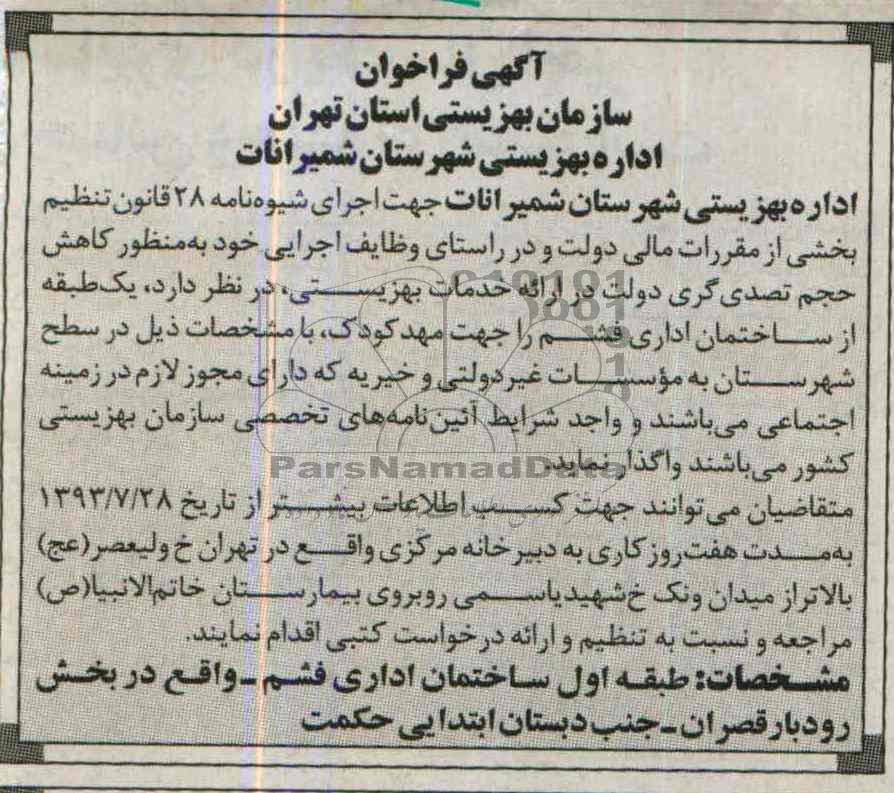 آگهی فراخوان
سازمان بهزیستی استان تهران
اداره بهزیستی شهرستان شمیرانات
اداره بهزیستی شهرستان شمیرانات جهت اجرای شیوه‌نامه ۲۸ قانون تنظیم
بخشی از مقررات مالی دولت و در راستای وظایف اجرایی خود به‌منظور کاهش
حجم تصدی گری دولت در ارائه خدمات بهزیستی، در نظر دارد، یک‌طبقه
از ساختمان اداری فشم را جهت مهدکودک، با مشخصات ذیل در سطح
شهرستان به مؤسسات غیردولتی و خیریه که دارای مجوز لازم در زمینه
اجتماعی می‌باشند و واجد شرایط آئین‌نامه‌های تخصصی سازمان بهزیستی
کشور می‌باشند واگذار نماید.
ParsNamadData
متقاضیان می‌توانند جهت کسب اطلاعات بیشتر از تاریخ ۱۳۹۳/۷/۲۸
به‌مدت هفت‌روز کاری به دبیرخانه مرکزی واقع در تهران خ ولیعصر(عج)
بالاتراز میدان ونک خ‌شهیدیاسمی روبروی بیمارستان خاتم‌الانبیا(ص)
مراجعه و نسبت به تنظیم و ارائه درخواست کتبی اقدام نمایند.
مشخصات: طبقه اول ساختمان اداری فشم ـ واقع در بخش
رودبارقصران ـ جنب دبستان ابتدایی حکمت